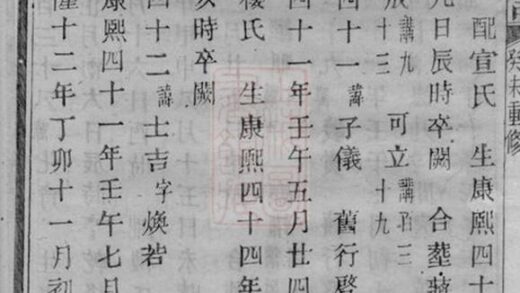 癸未重修
配宣氏 生康熙四十
日辰時卒闕 合塟蔣
講九十三 可立講百三十九
四十一講子儀 舊行啓
四十一年壬午五月廿四
氏 生康熙四十四年
亥時卒闕
四十二講士吉字煥若
康熙四十一年壬午七月
隆十二年丁卯十一月初